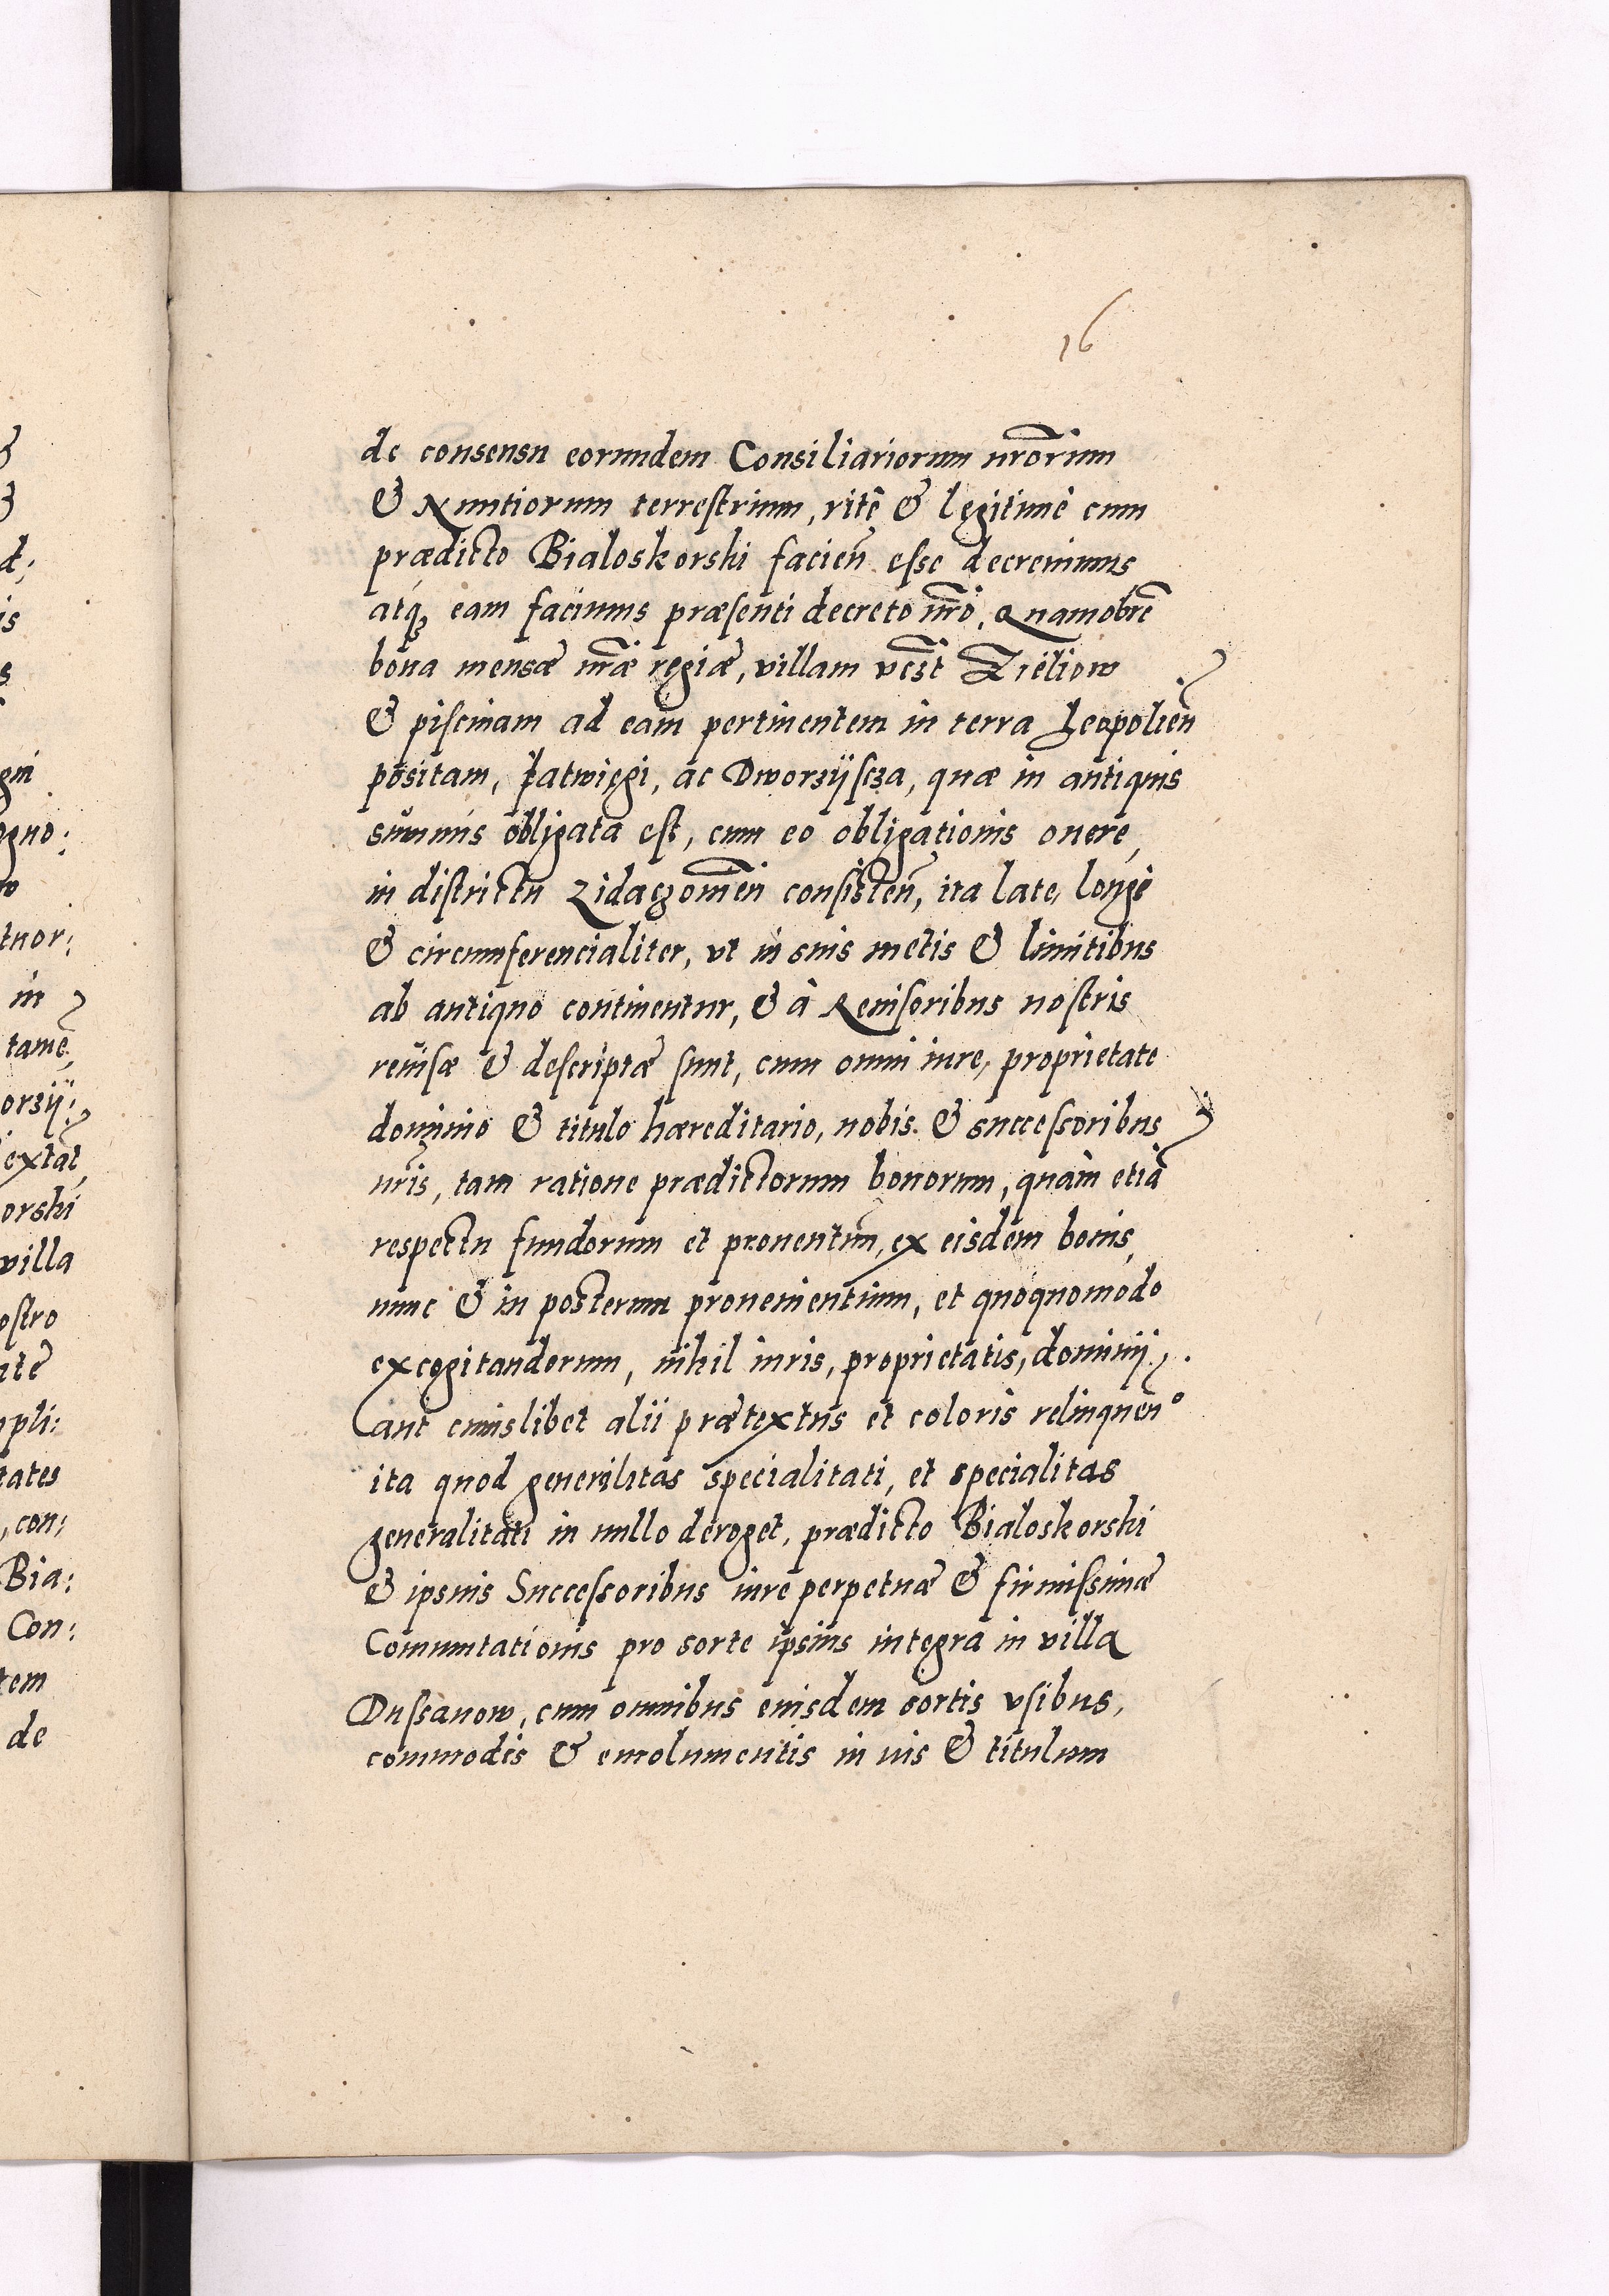 16
de consensu eorundem Consiliariorum nr̃orum
& Nuntiorum terrestrium, ritè & legitimè cum
prædicto Bialoskorski facien̄ esse decreuimus
atq₃ eam facimus præsenti decreto nr̃o, Quamobrē
bona mensæ nr̃æ regiæ, villam vcz̄t Zieliow
& piscinam ad eam pertinentem in terra Leopolien̄
positam, Łatwięgi, ac Dworzÿscza, quæ in antiquis
sum̄is obligata est, cum eo obligationis onere,
in districtu Zidaczouien̄ consisten̄, ita late, longè
& circumferencialiter, vt in suis metis & limitibus
ab antiquo continentur, & à Reuisoribus nostris
reuisæ & descriptæ sunt, cum omni iure, proprietate
dominio & titulo hæreditario, nobis. & successoribus
nr̃is, tam ratione prædictorum bonorum, quàm etiā
respectu fundorum et prouentuum, ex eisdem bonis,
nunc & in posterum prouenientium, et quoquomodo
excogitandorum, nihil iuris, proprietatis, dominij,
aut cuiuslibet alii prætextus et coloris relinquen̄
ita quod generalitas specialitati, et specialitas
generalitati in nullo deroget, prædicto Bialoskorski
& ipsius Successoribus iure perpetuæ & firmissimæ
Com̄utationis pro sorte ipsius integra in villa
Dussanow, cum omnibus eiusdem sortis vsibus,
commodis & emolumentis in ius & titulum